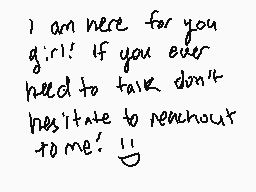 I am here for you
girl! If you ever
need to talk don't
hesitate to reachout
to me!